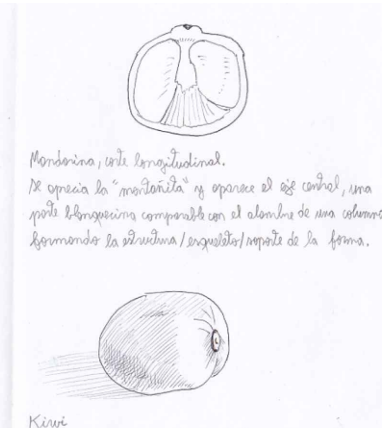 Mandarina, corte longitudinal.
Se aprecia la "montañita" y aparece el eje central, una
parte blanquecina comparable con el alambre de una columna
formando la estructura/esqueleto/soporte de la forma.
Kiwi